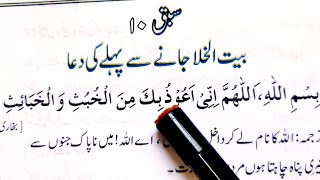 سبق ۱۰
بیت الخلا جانے سے پہلے کی دعا
بِسْمِ اللّٰهِ، اَللّٰهُمَّ اِنِّىْ اَعُوْذُ بِكَ مِنَ الْخُبُثِ وَ الْخَبَائِثِ (بخاری
رجمہ: اللہ کا نام لے کر داخل اے اللہ! میں ناپاک جنوں سے
تیری پناہ چاہتا ہوں مردہ